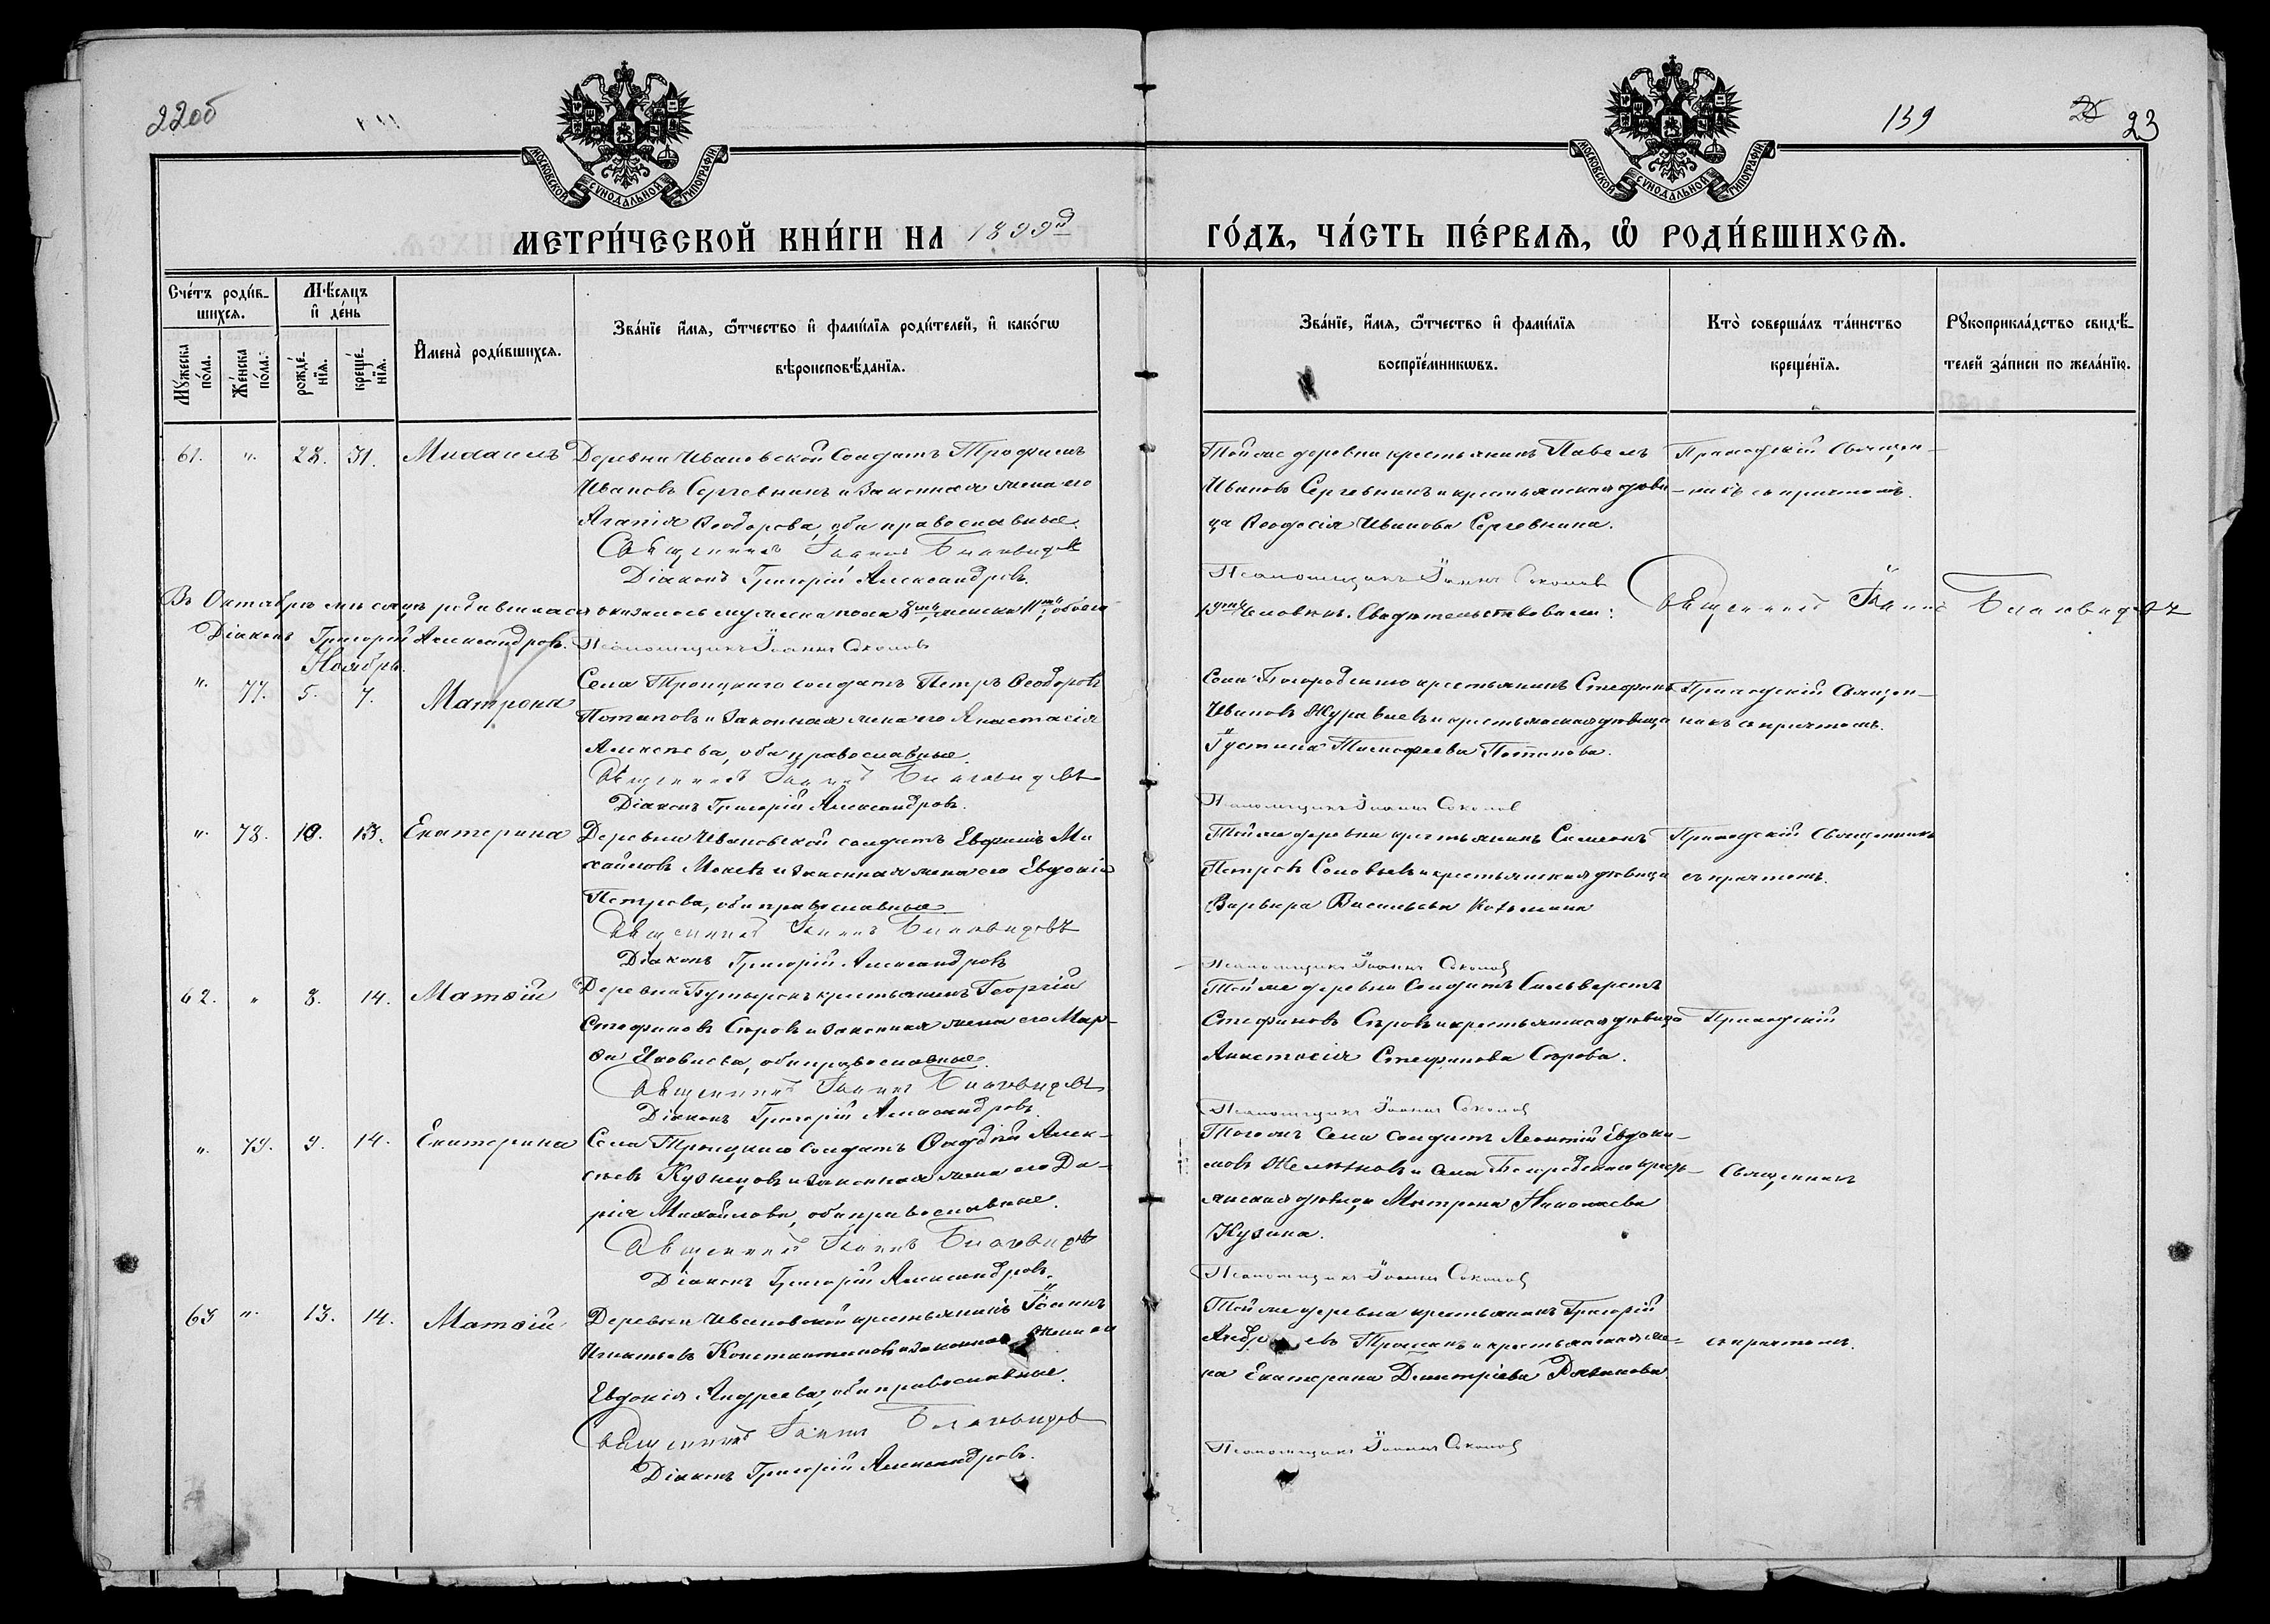 22об
139
23
МОСКОВСКОЙ СѴНОДАЛЬНОЙ ТИПОГРАФІИ
МОСКОВСКОЙ СѴНОДАЛЬНОЙ ТИПОГРАФІИ
МЕТРИ́ЧЕСКОЙ КНИ́ГИ НА 1899й
ГО́ДЪ, ЧА́СТЬ ПЕ́РВАѦ, Ѡ РОДИ́ВШИХСѦ.
Сче́тъ роди́в-
шихсѧ.
Мꙋ́жеска по́ла.
Же́нска по́ла.
Мѣ́сѧцъ
и҆ де́нь
рожде́-
нїѧ.
креще́-
нїѧ.
И҆мена̀ роди́вшихсѧ.
Зва́нїе и҆́мѧ, ѻ҆́тчество и҆ фамилїѧ роди́телей, и҆ како́гѡ
вѣроисповѣ́данїѧ.
Зва́нїе, и҆́мѧ, ѻ҆́тчество и҆ фамилїѧ
воспрїе́мникѡвъ.
Кто̀ соверша́лъ та́инство
креще́нїѧ.
Рꙋкоприкла́дство свидѣ́-
телей за́писи по жела́нїю.
61. " 28. 31. Михаилъ
Деревни Ивановской Солдатъ Трофимъ
Ивановъ Сергевнинъ и законная жена его
Агапія Ѳеодорова, оба православные.
Священникъ Іоаннъ Благовидовъ
Діаконъ Григорій Александровъ.
Той же деревни крестьянинъ Павелъ
Ивановъ Сергевнинъ и крестьянская дѣви-
ца Ѳеодосія Иванова Сергевнина.
Псаломщикъ Іоаннъ Соколовъ
Приходскій священ-
никъ съ причтомъ.
Въ Октябрѣ мѣсяцѣ родившихся оказалось мужеска пола 8ть, женска 11ть, обоего
19ть человѣкъ. Свидѣтельствовали: Священникъ Іоаннъ Благовидовъ
Діаконъ Григорій Александровъ. Псаломщикъ Іоаннъ Соколовъ
Ноябрь.
" 77. 5. 7. Матрона
Села Троицкаго солдатъ Петръ Ѳеодоровъ
Потаповъ и законная жена его Анастасія
Алексѣева, оба православные.
Священникъ Іоаннъ Благовидовъ
Діаконъ Григорій Александровъ.
Села Богородскаго крестьянинъ Стефанъ
Ивановъ Журавлевъ и крестьянская дѣвица
Іустина Тимофеева Потапова.
Псаломщикъ Іоаннъ Соколовъ
Приходскій священ-
никъ съ причтомъ.
" 78. 10. 13. Екатерина
Деревни Ивановской солдатъ Евфимъ Ми-
хайловъ и законная жена его Евдокія
Петрова, оба православные
Священникъ Іоаннъ Благовидовъ
Діаконъ Григорій Александровъ
Той же деревни крестьянинъ Симеонъ
Петровъ Соловьевъ и крестьянская дѣвица
Варвара Васильева Козьмина
Псаломщикъ Іоаннъ Соколовъ
Приходскій Священникъ
съ причтомъ.
62. " 8. 14. Матѳій
Деревни Бутырокъ крестьянинъ Георгій
Стефановъ Сѣровъ и законная жена его Мар-
ѳа Яковлева, оба православные.
Священникъ Іоаннъ Благовидовъ
Діаконъ Григорій Александровъ.
Той же деревни Солдатъ Сильверстъ
Стефановъ Сѣровъ и крестьянская дѣвица
Анастасія Стефанова Сѣрова.
Псаломщикъ Іоаннъ Соколовъ
Приходскій
" 79. 9. 14. Екатерина
Села Троицкаго солдатъ Ѳаддей Алек-
сѣевъ Кузнецовъ и законная жена его Да-
рія Михайлова, оба православные.
Священникъ Іоаннъ Благовидовъ
Діаконъ Григорій Александровъ.
Того же Села солдатъ Леонтій Евдоки-
мовъ и Села Богородскаго кресть-
янская дѣвица Матрона Николаева
Кузина.
Псаломщикъ Іоаннъ Соколовъ
Священникъ
63 " 13. 14. Матѳій
Деревни Ивановской крестьянинъ Іоаннъ
Игнатьевъ Константиновъ и законная жена его
Евдокія Андреева, оба православные.
Священникъ Іоаннъ Благовидовъ
Діаконъ Григорій Александровъ.
Той же деревни крестьянинъ Григорій
Андреевъ и крестьянская же-
на Екатерина Димитріева
Псаломщикъ Іоаннъ Соколовъ
съ причтомъ.